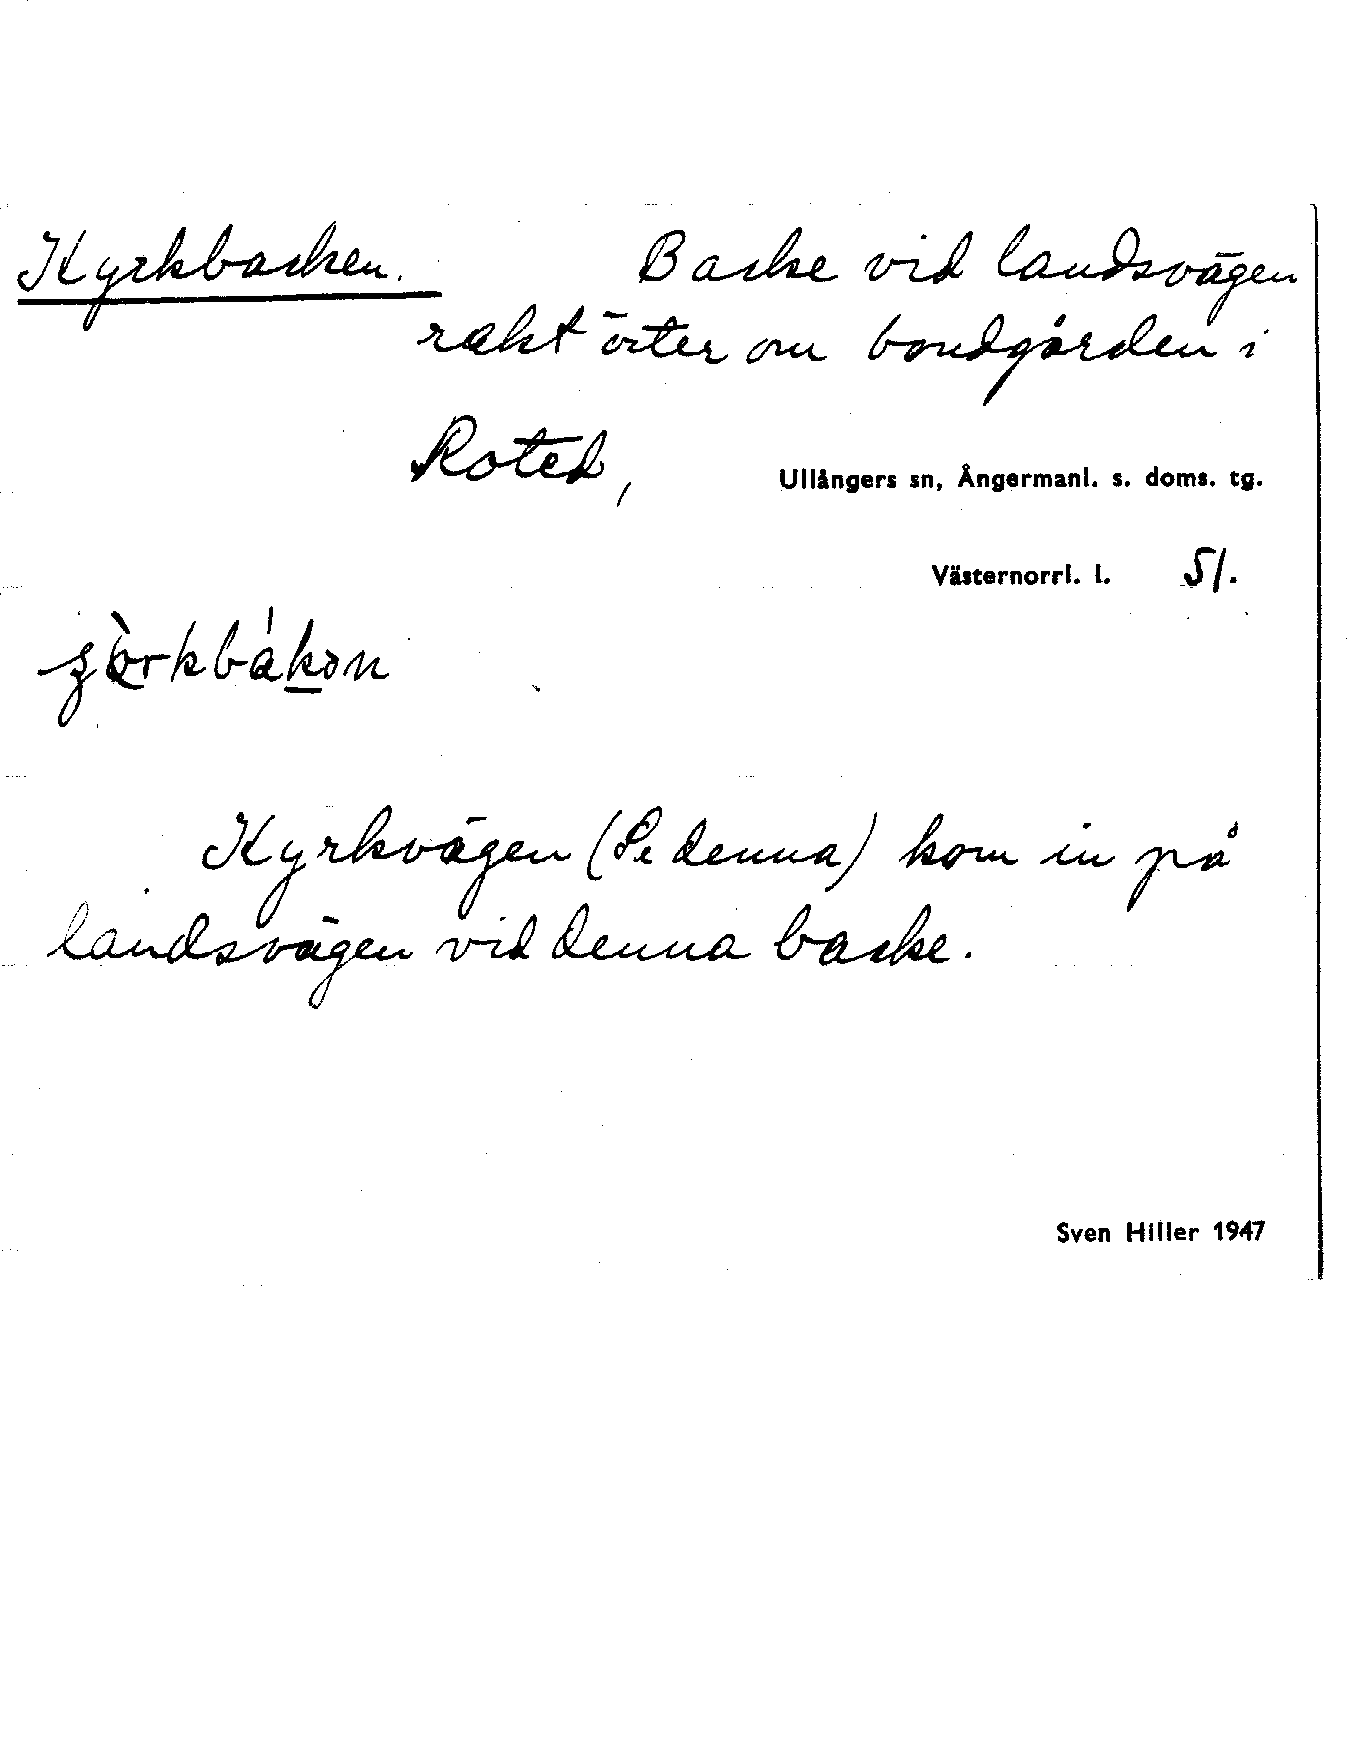 Kyrkbacken. Backe vid landsvägen
rakt öster om bondgården i
Roted,
Ullångers sn, Ångermanl. s. doms. tg.
Västernorrl. l. 51.
Kyrkvägen (Se denna) kom in på
landsvägen vid denna backe.
Sven Hiller 1947